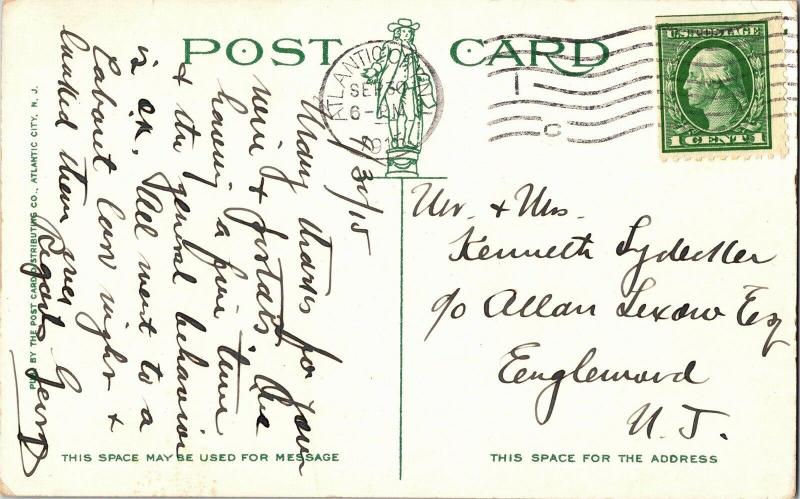 POST CARD
ATLANTIC CITY N.J.
SEP 30
6-
1915
U.S. POSTAGE
1 CENT 1
9/30/15
Many thanks for your
wire & postals. Are
having a fine time
& the general behavior
is OK. Tell went to a
Cabaret last night &
looked them over
Regards
PUB BY THE POST CARD DISTRIBUTING CO., ATLANTIC CITY, N. J.
Mr. & Mrs.
Kenneth Lydecker
c/o Allan Lexow Esq
Englewood
N. J.
THIS SPACE MAY BE USED FOR MESSAGE
THIS SPACE FOR THE ADDRESS